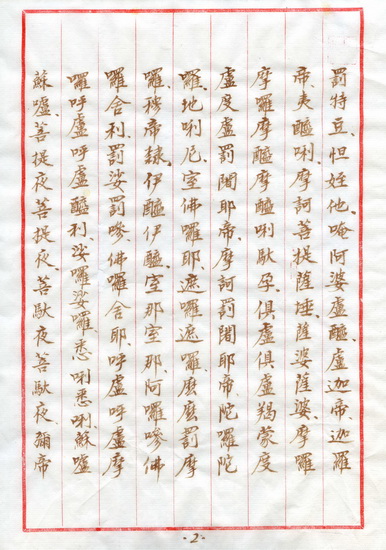 罰特豆、怛姪他、唵阿婆盧醯、盧迦帝、迦羅
帝、夷醯唎、摩訶菩提薩埵、薩婆薩婆、摩囉
摩囉摩醯摩醯唎馱孕、俱盧俱盧羯蒙度
盧度盧罰闍耶帝、摩訶罰闍耶帝、陀囉陀
囉、地唎尼、室佛囉耶、遮囉遮囉、麼麼罰摩
囉、穆帝隸、伊醯伊醯、室那室那、阿囉嘇佛
囉舍利、罰娑罰嘇、佛囉舍耶、呼盧呼盧摩
囉呼盧呼盧醯利、娑囉娑囉悉唎悉唎、蘇嚧
蘇嚧、菩提夜菩提夜、菩馱夜菩馱夜、彌帝
·2·